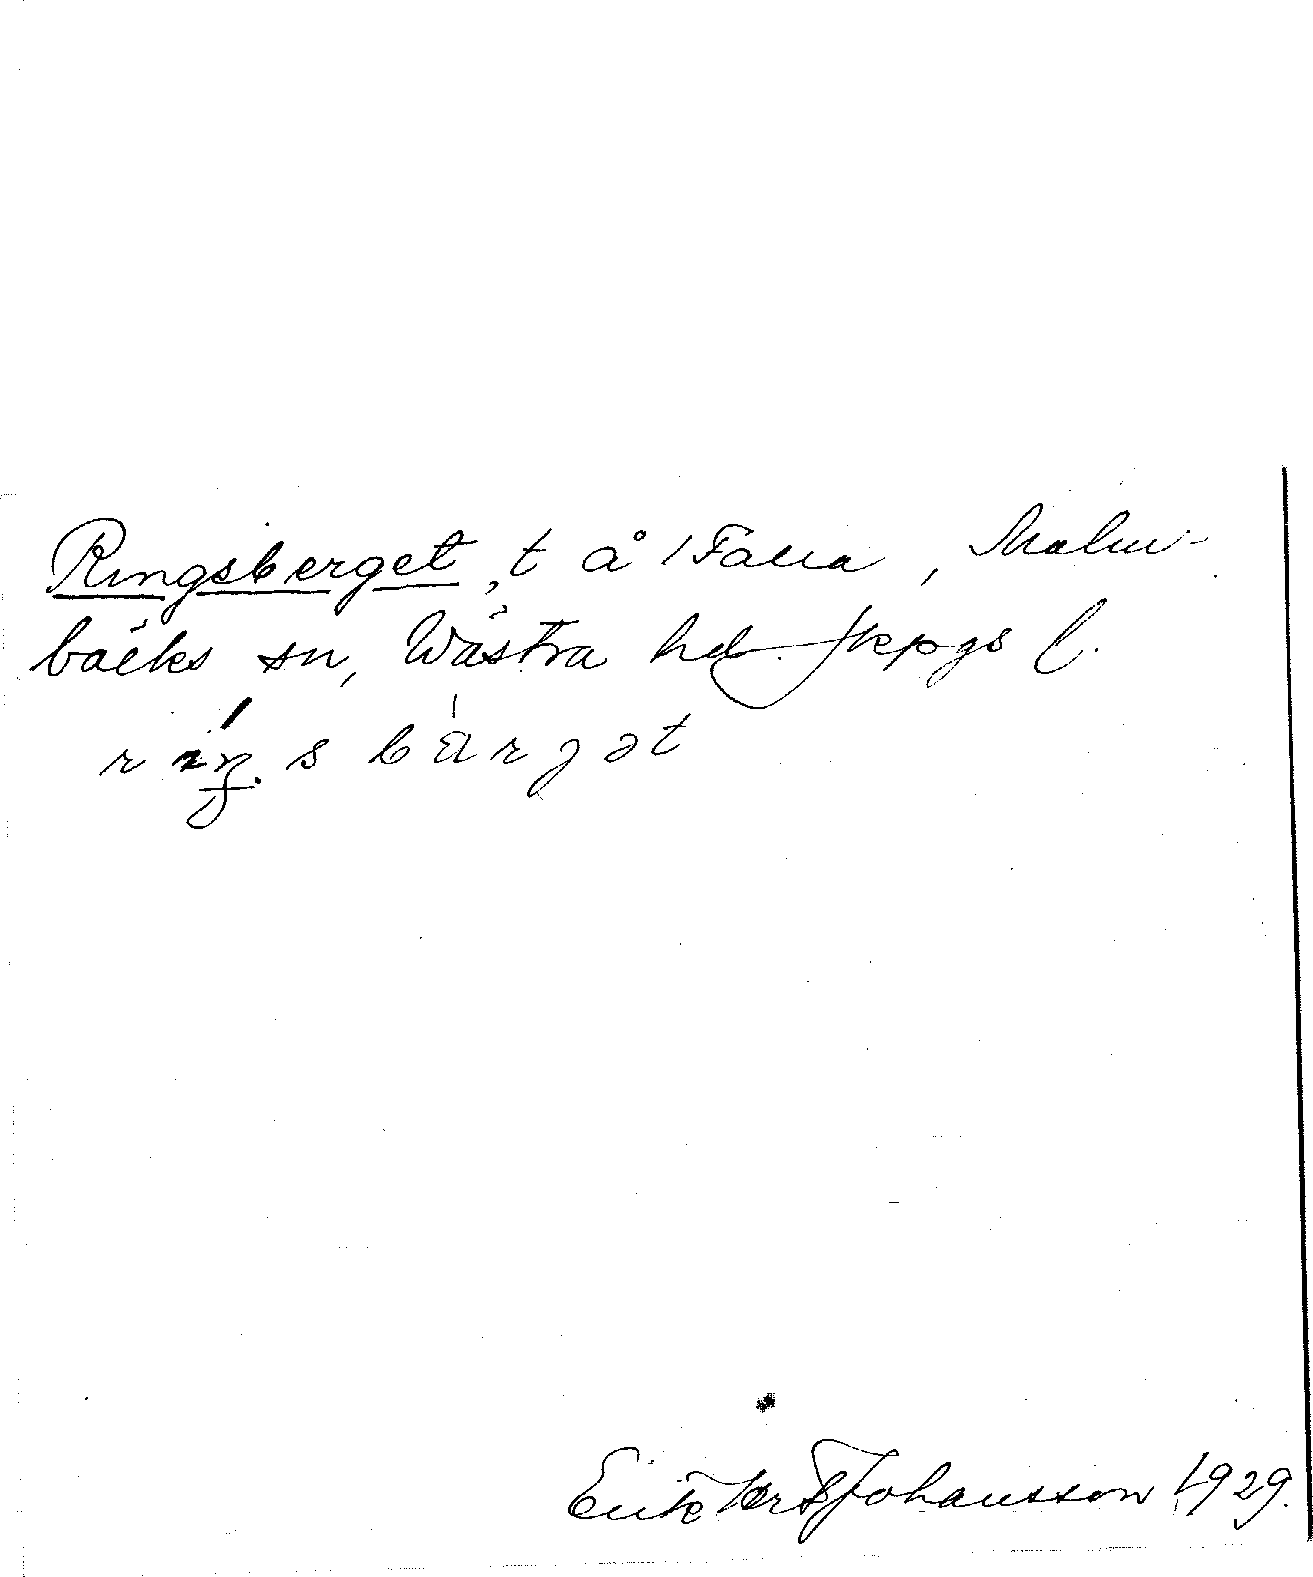 Ringsberget, t å /Falla, Malm-
bäcks sn, Wästra hd. Jkpgs l.
riŋsbärjət
Erik Johansson 1929.